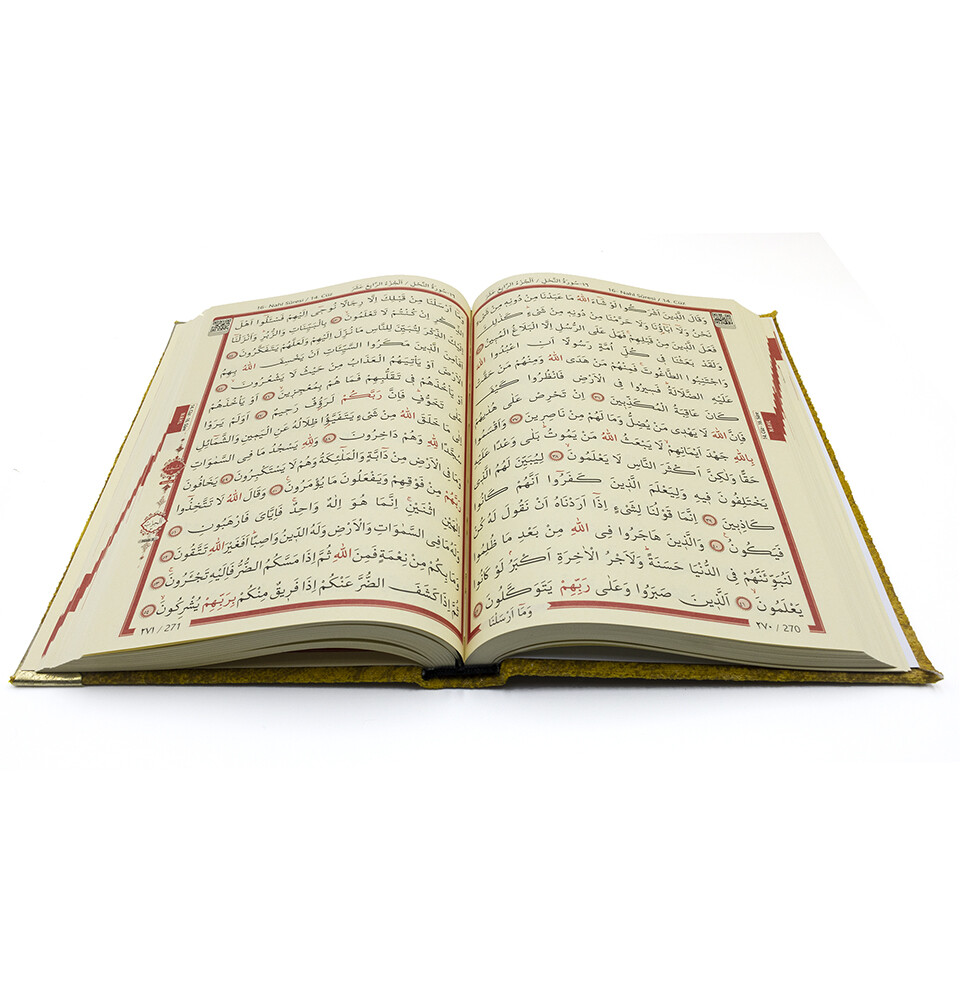 ١٦- سُورَةُ النَّحْلِ / اَلْجُزْءُ الرَّابِعُ عَشَرَ
16- Nahl Sûresi / 14. Cüz
وَقَالَ الَّذِينَ اَشْرَكُوا لَوْ شَاءَ اللّٰهُ مَا عَبَدْنَا مِنْ دُونِهِ مِنْ
نَحْنُ وَلَا اٰبَاؤُنَا وَلَا حَرَّمْنَا مِنْ دُونِهِ مِنْ شَيْءٍ كَذٰلِكَ
فَعَلَ الَّذِينَ مِنْ قَبْلِهِمْ فَهَلْ عَلَى الرُّسُلِ اِلَّا الْبَلَاغُ
وَلَقَدْ بَعَثْنَا فِي كُلِّ اُمَّةٍ رَسُولًا اَنِ اعْبُدُوا اللّٰهَ
وَاجْتَنِبُوا الطَّاغُوتَ فَمِنْهُمْ مَنْ هَدَى اللّٰهُ وَمِنْهُمْ مَنْ حَقَّتْ
عَلَيْهِ الضَّلَالَةُ فَسِيرُوا فِي الْاَرْضِ فَانْظُرُوا كَيْفَ
كَانَ عَاقِبَةُ الْمُكَذِّبِينَ ٣٦ اِنْ تَحْرِصْ عَلٰى هُدٰيهُمْ
فَاِنَّ اللّٰهَ لَا يَهْدِي مَنْ يُضِلُّ وَمَا لَهُمْ مِنْ نَاصِرِينَ ٣٧ وَاَقْسَمُوا
بِاللّٰهِ جَهْدَ اَيْمَانِهِمْ لَا يَبْعَثُ اللّٰهُ مَنْ يَمُوتُ بَلٰى وَعْدًا عَلَيْهِ
حَقًّا وَلٰكِنَّ اَكْثَرَ النَّاسِ لَا يَعْلَمُونَ ٣٨ لِيُبَيِّنَ لَهُمُ الَّذِي
يَخْتَلِفُونَ فِيهِ وَلِيَعْلَمَ الَّذِينَ كَفَرُوا اَنَّهُمْ كَانُوا
كَاذِبِينَ ٣٩ اِنَّمَا قَوْلُنَا لِشَيْءٍ اِذَا اَرَدْنَاهُ اَنْ نَقُولَ لَهُ كُنْ
فَيَكُونُ ٤٠ وَالَّذِينَ هَاجَرُوا فِي اللّٰهِ مِنْ بَعْدِ مَا ظُلِمُوا
لَنُبَوِّئَنَّهُمْ فِي الدُّنْيَا حَسَنَةً وَلَاَجْرُ الْاٰخِرَةِ اَكْبَرُ لَوْ كَانُوا
يَعْلَمُونَ ٤١ اَلَّذِينَ صَبَرُوا وَعَلٰى رَبِّهِمْ يَتَوَكَّلُونَ ٤٢
وَمَا اَرْسَلْنَا
٢٧٠ / 270
١٦- سُورَةُ النَّحْلِ / اَلْجُزْءُ الرَّابِعُ عَشَرَ
16- Nahl Sûresi / 14. Cüz
اَرْسَلْنَا مِنْ قَبْلِكَ اِلَّا رِجَالًا نُوحِي اِلَيْهِمْ فَسْـَٔلُوا اَهْلَ
الذِّكْرِ اِنْ كُنْتُمْ لَا تَعْلَمُونَ ٤٣ بِالْبَيِّنَاتِ وَالزُّبُرِ وَاَنْزَلْنَا
الذِّكْرَ لِتُبَيِّنَ لِلنَّاسِ مَا نُزِّلَ اِلَيْهِمْ وَلَعَلَّهُمْ يَتَفَكَّرُونَ ٤٤
اَفَاَمِنَ الَّذِينَ مَكَرُوا السَّيِّـَٔاتِ اَنْ يَخْسِفَ اللّٰهُ بِهِمُ
الْاَرْضَ اَوْ يَأْتِيَهُمُ الْعَذَابُ مِنْ حَيْثُ لَا يَشْعُرُونَ ٤٥
اَوْ يَأْخُذَهُمْ فِي تَقَلُّبِهِمْ فَمَا هُمْ بِمُعْجِزِينَ ٤٦ اَوْ يَأْخُذَهُمْ
عَلٰى تَخَوُّفٍ فَاِنَّ رَبَّكُمْ لَرَؤُفٌ رَحِيمٌ ٤٧ اَوَلَمْ يَرَوْا
اِلٰى مَا خَلَقَ اللّٰهُ مِنْ شَيْءٍ يَتَفَيَّؤُا ظِلَالُهُ عَنِ الْيَمِينِ وَالشَّمَائِلِ
سُجَّدًا لِلّٰهِ وَهُمْ دَاخِرُونَ ٤٨ وَلِلّٰهِ يَسْجُدُ مَا فِي السَّمٰوَاتِ
وَمَا فِي الْاَرْضِ مِنْ دَابَّةٍ وَالْمَلٰئِكَةُ وَهُمْ لَا يَسْتَكْبِرُونَ ٤٩ يَخَافُونَ
رَبَّهُمْ مِنْ فَوْقِهِمْ وَيَفْعَلُونَ مَا يُؤْمَرُونَ ٥٠ وَقَالَ اللّٰهُ لَا تَتَّخِذُوا
اِلٰهَيْنِ اثْنَيْنِ اِنَّمَا هُوَ اِلٰهٌ وَاحِدٌ فَاِيَّايَ فَارْهَبُونِ ٥١
وَلَهُ مَا فِي السَّمٰوَاتِ وَالْاَرْضِ وَلَهُ الدِّينُ وَاصِبًا اَفَغَيْرَ اللّٰهِ تَتَّقُونَ ٥٢
وَمَا بِكُمْ مِنْ نِعْمَةٍ فَمِنَ اللّٰهِ ثُمَّ اِذَا مَسَّكُمُ الضُّرُّ فَاِلَيْهِ تَجْـَٔرُونَ ٥٣
ثُمَّ اِذَا كَشَفَ الضُّرَّ عَنْكُمْ اِذَا فَرِيقٌ مِنْكُمْ بِرَبِّهِمْ يُشْرِكُونَ ٥٤
٢٧١ / 271